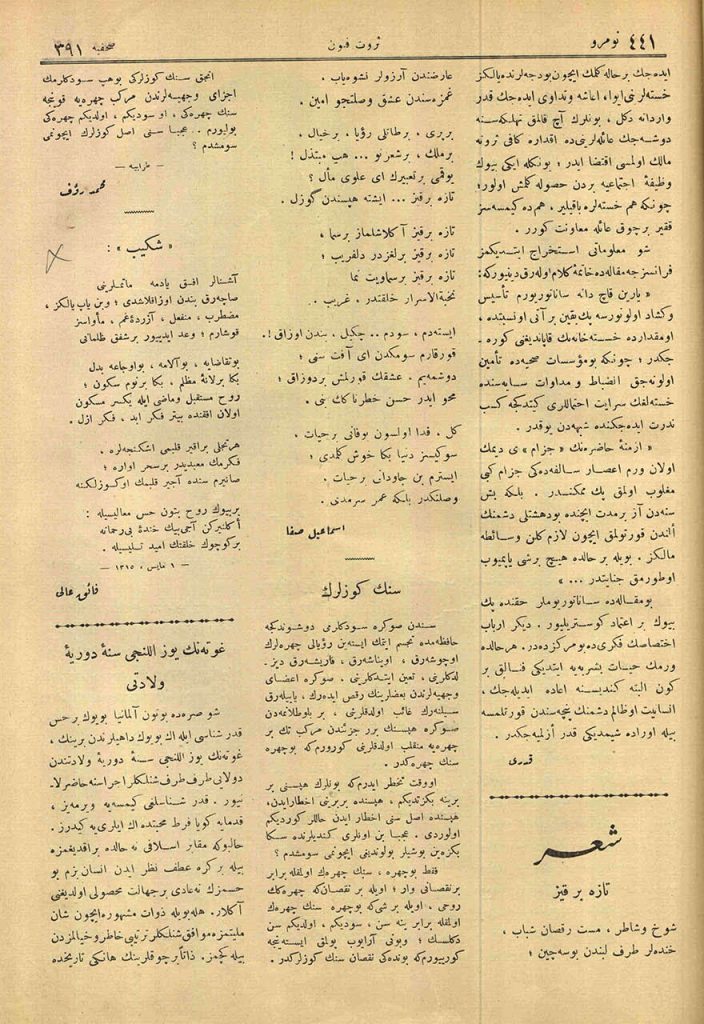 نومرو ٤٤١
ثروت فنون
صحیفه ٣٩١
ایده‌جك برحاله كلمك ایچون بودجه‌لرنده یالكز
خسته‌لرنی ایواء اعاشه وتداوی ایده‌جك قدر
وارداته دكل ، بونلرك آچ قالمق تهلكه‌سنه
دوشه‌جك عائله‌لرینی‌ده اقداره كافی ثروته
مالك اولمسی اقتضا ایدر ؛ بونكله ایكی بیوك
وظیفهٔ اجتماعیه بردن حصوله كلمش اولور ؛
چونكه هم خسته‌لره باقیلیر ، هم‌ده كیمسه‌سز
فقیر برچوق عائله معاونت كورر .
شو معلوماتی استخراج ایتدیكمز
فرانسزجه مقاله‌ده خاتمهٔ كلام اوله‌رق دینیوركه :
« یارین قاچ دانه ساناتوریوم تأسیس
وكشاد اولنورسه پك یقین بر آتی اونسبتده ،
اومقدارده خسته‌خانه‌نك قاپاندیغنی كوره ـ
جكدر ؛ چونكه بومؤسسات صحیه‌ده تأمین
اولنه‌جق انضباط و مداوات سایه‌سنده
خسته‌لغك سرایت احتماللری كیتدكجه كسب
ندرت ایده‌جكنده شبهه‌دن یوقدر .
« ازمنهٔ حاضره‌نك « جزام » ی دیمك
اولان ورم اعصار سالفه‌ده‌كی جزام كبی
مغلوب اولمق پك ممكندر . بلكه بش
سنه‌دن آز برمدت ایچنده بودهشتلی دشمنك
النندن قورتولمق ایچون لازم كلن وسائطه
مالكز . بویله بر حالده هیچ برشی یاپمیوب
اوطورمق جنایتدر ... »
بومقاله‌ده ساناتوریوملر حقنده پك
بیوك بر اعتماد كوستریلیور . دیكر ارباب
اختصاصك فكری‌ده بومركزده‌در . هرحالده
ورمك حیات بشریه‌یه ایتدیكی فنالق بر
كون البته كندیسنه اعاده ایدیله‌جك ،
انسانیت اوظالم دشمنك پنجه‌سندن قورتلمسه
بیله اوراده شیمدیكی قدر ازلمیه‌جكدر .
قدری
شعر
تازه بر قیز
شوخ وشاطر ، مست رقصان شباب ،
خنده‌لر طرف لبندن بوسه‌چین ؛
عارضندن آرزولر نشوه‌یاب .
غمزه‌سندن عشق وصلتجو امین .
بر پری ، برطاتلی رؤیا ، برخیال ،
برملك ، برشعر نو ... هپ مبتذل !
یوقمی برتعبیرك ای علوی مآل ؟
تازه برقیز ... ایشته هپسندن گوزل .
تازه برقیز آكلاشلماز برسما ،
تازه برقیز برلغزدر دلفریب ؛
تازه برقیز برسماویت نما
نخبةالاسرار خلقتدر . غریب ..
ایسته‌دم ، سودم .. چكیل ، بندن اوزاق !.
قورقارم سومكدن ای آفت سنی ؛
دوشمه‌یم . عشقك قورلمش بردوزاق ؛
محو ایدر حسن خطرناكك بنی .
كل . فدا اولسون بوفانی برحیات ،
سوكیسز دنیا بكا خوش كلمدی ؛
ایسترم بن جاودانی برحیات .
وصلتكدر بلكه عمر سرمدی .
اسماعیل صفا
سنك كوزلرك
سندن صوكره سودكلرمی دوشوندكجه
حافظه‌مده تجسم ایتمك ایسته‌ین رؤیالی چهره‌لرك
اوچوشه‌رق ، اویناشه‌رق ، قاریشه‌رق دیز ـ
لدكلرینی ، تعین ایتدكلرینی . صوكره اعضای
وجهیه‌لرندن بعضلرینك رقص ایده‌رك ، یاپیله‌رق
سیلنه‌رك غائب اولدقلرینی ، بر بلوطلانمه‌دن
صوكره هپسنك برر جزئندن مركب تك بر
چهره‌یه منقلب اولدقلرینی كورورم‌كه بوچهره
سنك چهره‌كدر .
اووقت تخطر ایدرم‌كه بونلرك هپسنی بر
برینه بكزتدیكم ، هپسنده بربرینی اخطار ایدن ،
هپسنده اصل سنی اخطار ایدن حاللر كوردیكم
اولوردی . عجبا بن اونلری كندیلرنده سكا
بكزه‌ین بوشیلر بولوندیغی ایچونمی سومشدم ؟
فقط بوچهره ، سنك چهره‌ك اولمقله برابر
برنقصانی وار ؛ اویله بر نقصان‌كه چهره‌كك
روحی ، اویله بر شی‌كه بوچهره سنك چهره‌ك
اولمقله برابر ینه سن ، سودیكم ، اولدیكم سن
دكلسك ؛ وبونی آرایوب بولمق ایسته‌ینجه
كورییورم‌كه بونده‌كی نقصان سنك كوزلركدر .
انجق سنك كوزلركی بوهپ سودكلرمك
اجزای وجهیه‌لرندن مركب چهره‌یه قوینجه
سنك چهره‌كی ، او سودیكم ، اولدیكم چهره‌كی
بولیورم .. عجبا سنی اصل كوزلرك ایچونمی
سومشدم ؟
— طرابیه —
محمد رؤف
« شكیب » :
آشنالر افق یادمه ماتملرینی
صاچه‌رق بندن اوزاقلاشدی ؛ وبن پاپ یالكز ،
مضطرب ، منفعل ، آزردهٔ غم ، مأواسز
قوشارم ؛ وعد ایدییور برشفق ظلمانی
بوتقاضایه ، بوآلامه ، بواوجاعه بدل
بكا برلانهٔ مظلم ، بكا برنوم سكون ؛
روح مستقبل وماضی ایله یكسر مسكون
اولان افقنده بیتر فكر ابد ، فكر ازل .
هرتجلی براقیر قلبمی اشكنجه‌لره .
فكرمك معبدیدر برسحر آواره ؛
صانیرم سنده آجیر قلبمك اوكوزلكنه
بربیوك روح بتون حس معالیسیله :
آكلانیركن آجی‌بیك خندهٔ بی‌رحمانه
بركوچوك خلقتك امید تسلیسیله .
— ١ مایس ، ١٣١٥ —
فائق عالی
غوته‌نك یوز اللنجی سنهٔ دوریهٔ
ولادتی
شو صره‌ده بوتون آلمانیا بویوك برحس
قدر شناسی ایله اك بویوك داهیلرندن برینك ،
غوته‌نك یوز اللنجی سنهٔ دوریهٔ ولادتندن
دولایی طرف طرف شنلكلر اجراسنه حاضرلا ـ
نیور . قدر شناسلغی كیمسه‌یه ویرمه‌یز ،
قدمایه كویا فرط محبتده اك ایلری‌یه كیدرز .
حالبوكه مقابر اسلافی نه حالده براقدیغمزه
بیله بركره عطف نظر ایدن انسان بزم بو
حسمزك نه‌عادی برجهالت محصولی اولدیغنی
آكلار . هله‌بویله ذوات مشهوره‌ایچون شان
ملیتمزه موافق شنلكلر ترتیبی خاطر وخیالمزدن
بیله كچمز . ذاتاً برچوقلرینك هانكی تاریخده